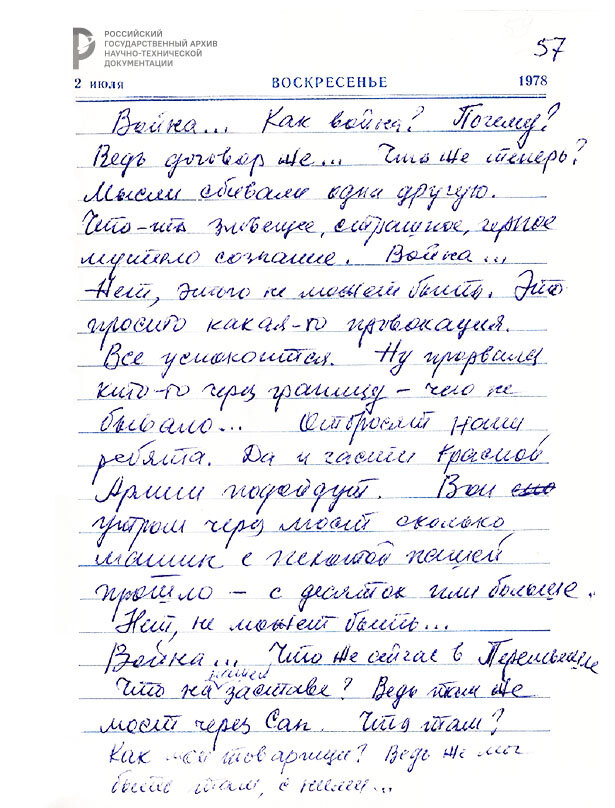 РОССИЙСКИЙ
ГОСУДАРСТВЕННЫЙ АРХИВ
НАУЧНО-ТЕХНИЧЕСКОЙ
ДОКУМЕНТАЦИИ
57
2 июля ВОСКРЕСЕНЬЕ 1978
Война... Как война? Почему?
Ведь договор же... Что же теперь?
Мысли сбивали одна другую.
Что-то зловещее, страшное, черное
мутило сознание. Война...
Нет, этого не может быть. Это
просто какая-то провокация.
Все успокоится. Ну прорвался
кто-то через границу – чего не
бывало... Отбросят наши
ребята. Да и части Красной
Армии подойдут. Вон
утром через мост сколько
машин с пехотой нашей
прошло – с десяток или больше.
Нет, не может быть...
Война... Что же сейчас в Перемышле
Что на нашей заставе? Ведь там же
мост через Сан. Что там?
Как мои товарищи? Ведь же мог
быть там, с ними...